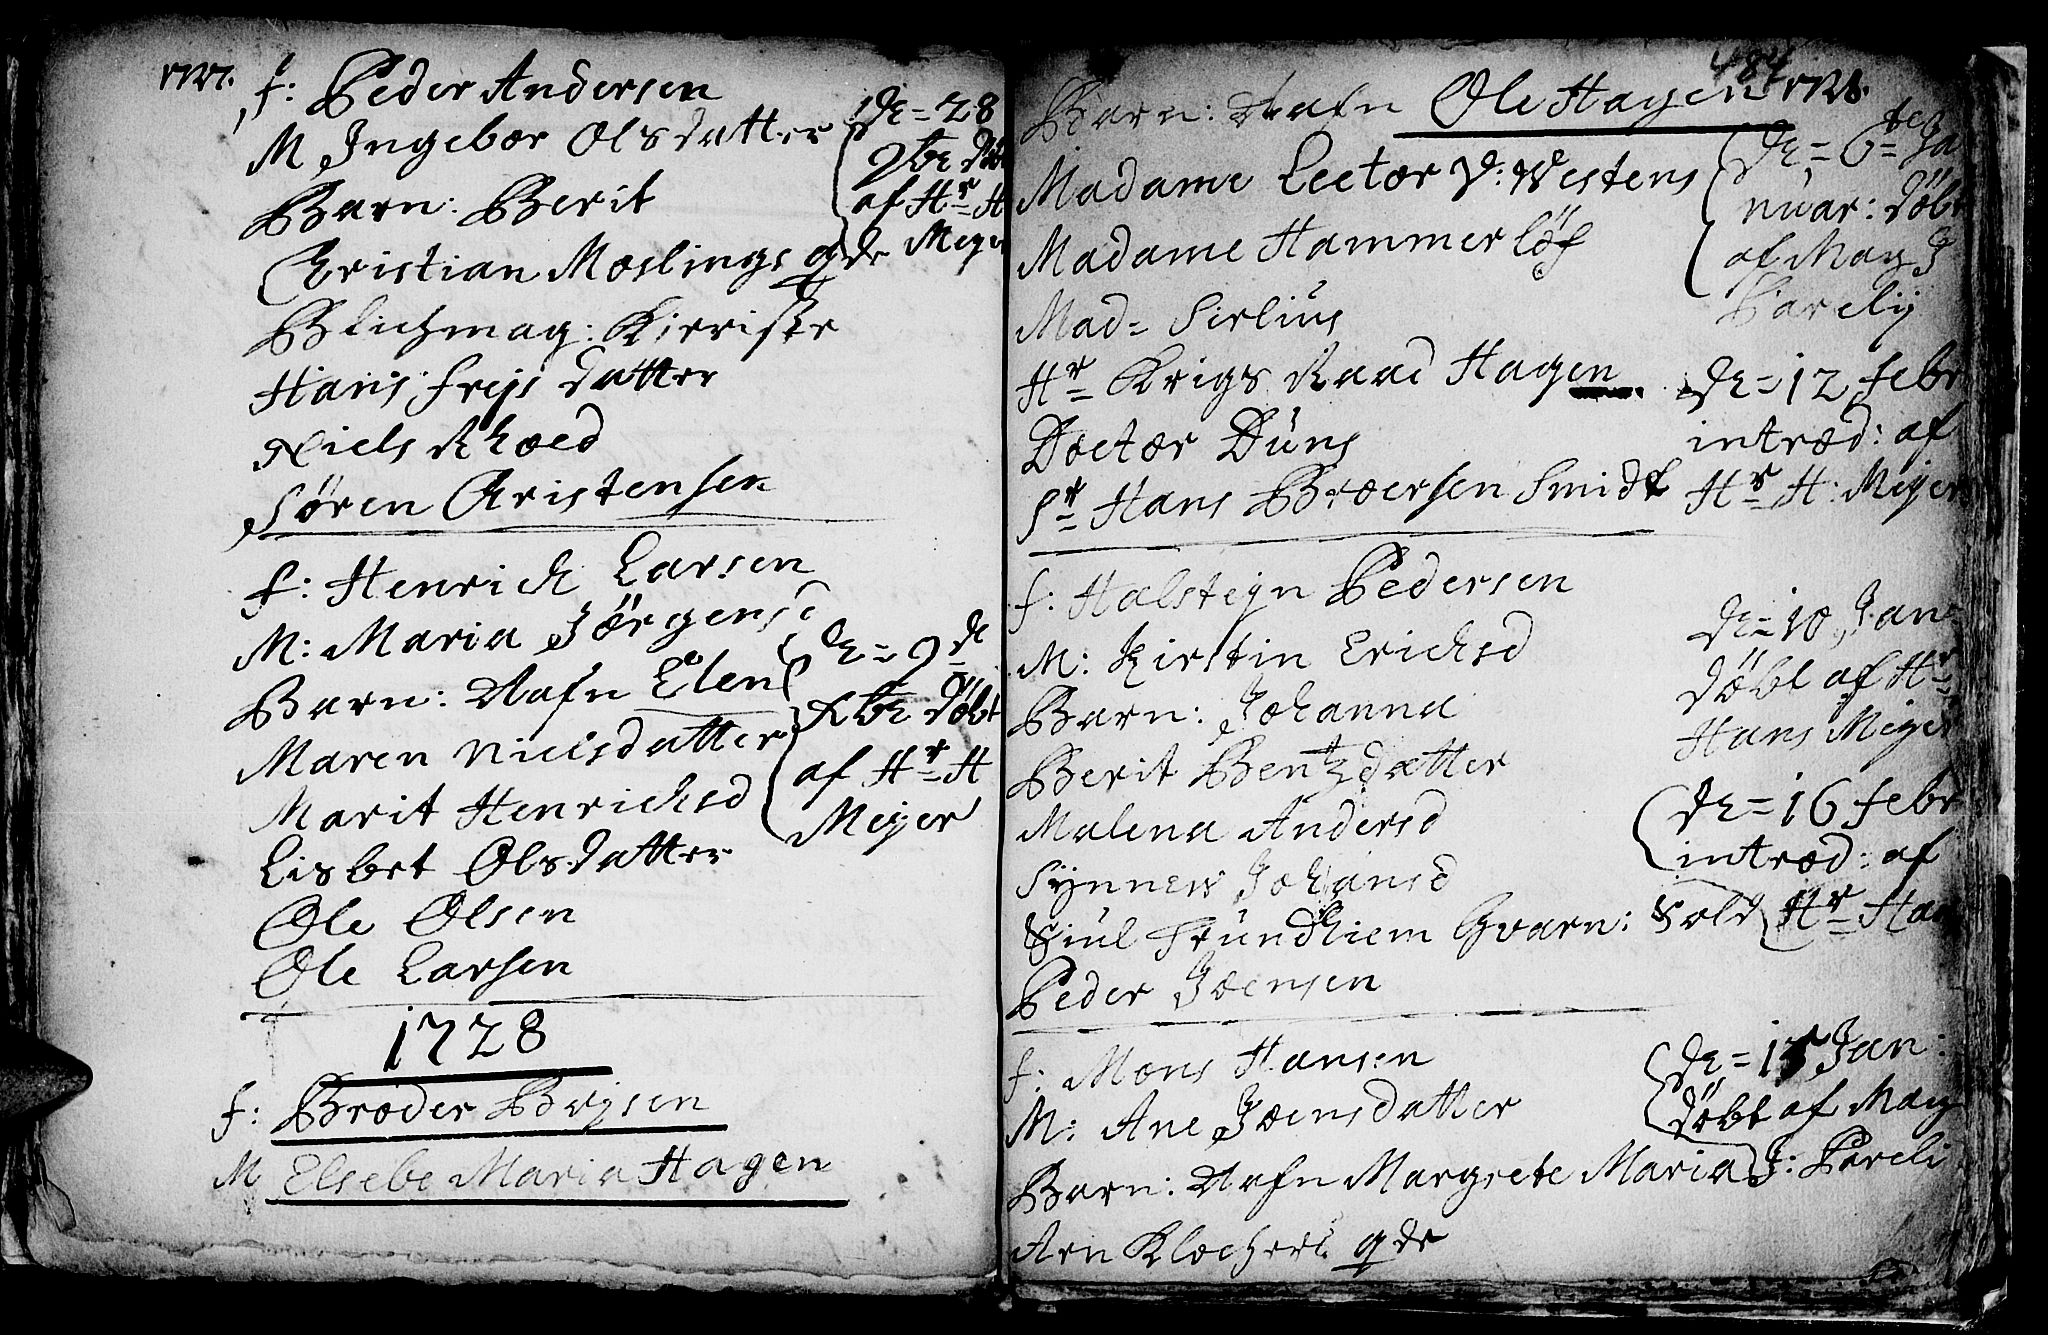 1727.
f: Peder Andersen
M Ingebor Olsdatter
Barn: Berit
Christian Moslings qde
Blichmag: Kieriske
Hans Freis datter
Niels Rhoed
Søren Christensen
de = 28
9br döbt
af Hr H
Meyer
f: Henrich Larsen
M: Maria Jörgensd
Barn: Nafn Elen
Maren Nielsdatter
Marit Henrichsd
Lisbet Olsdatter
Ole Olsen
Ole Larsen
de = 9de
Xbr döbt
af Hr H
Meyer
1728
f: Broder Boysen
M Elsebe Maria Hagen
484
1728.
Barn: Nafn Ole Hagen
Madame Lector V: Westens
Madame Hammer löf
Mad= Sirlius
Hr Krigs Raad Hagen
Doctor Düns
Sr Hans Broersen Smidt
de = 6te Ja
nuar: döbt
af Mag J
Parelij
de = 12 febr
introd: af
Hr H: Meyer
f: Halsteyn Pedersen
M: Kirstin Erichsd
Barn: Johanna
Berit Bentzdatter
Malena Andersd
Synnew Johansd
Siul Trundhiem Gvarn: Sold
Peder Joensen
de = 10 Jan
döbt af Hr
Hans Meyer
de = 16 febr
introd: af
Hr Han
f: Mons Hansen
M: Ane Joensdatter
Barn: Nafn Margrete Maria
Arn Klochers qde
de = 15 Jan:
döbt af Mag
J: Pareli